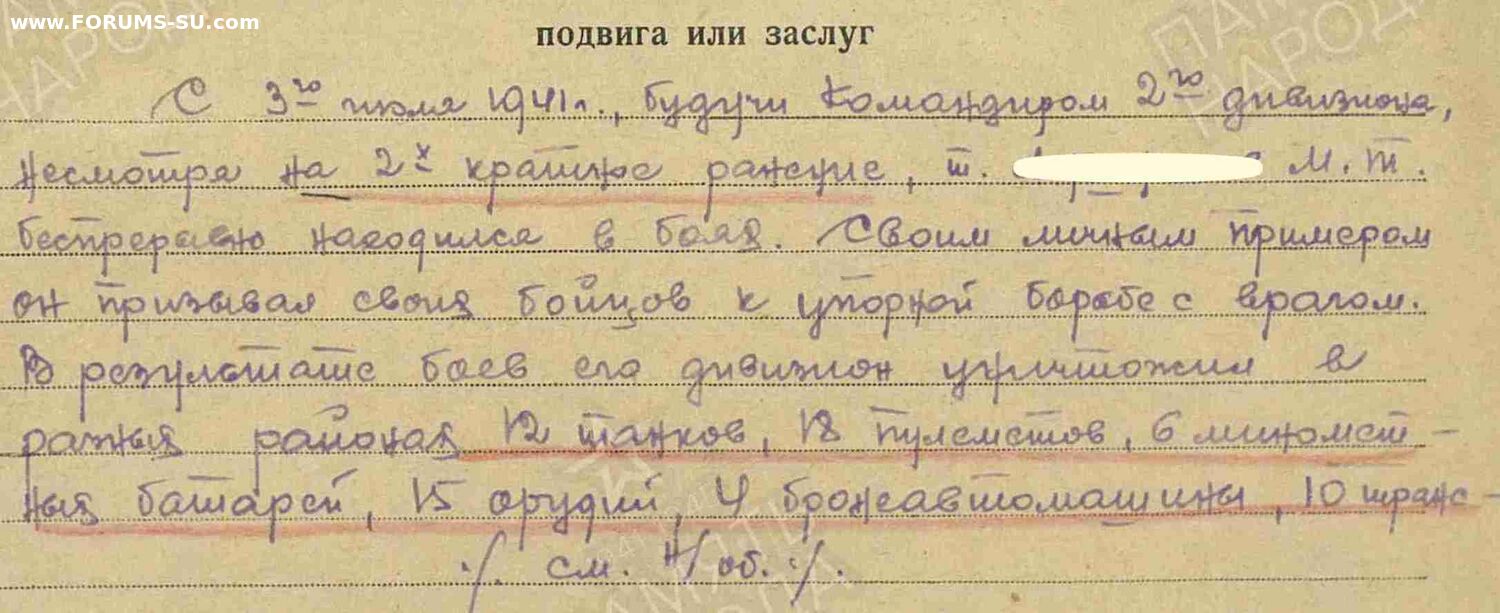 www.FORUMS-SU.com
подвига или заслуг
С 3го июля 1941 г., будучи командиром 2го дивизиона,
несмотря на 2х кратное ранение, т. М. Т.
беспрерывно находился в боях. Своим личным примером
он призывал своих бойцов к упорной борьбе с врагом.
В результате боев его дивизион уничтожил в
разных районах 12 танков, 18 пулеметов, 6 миномет-
ных батарей, 15 орудий, 4 бронеавтомашины, 10 транс-
./. см. н/об. ./.